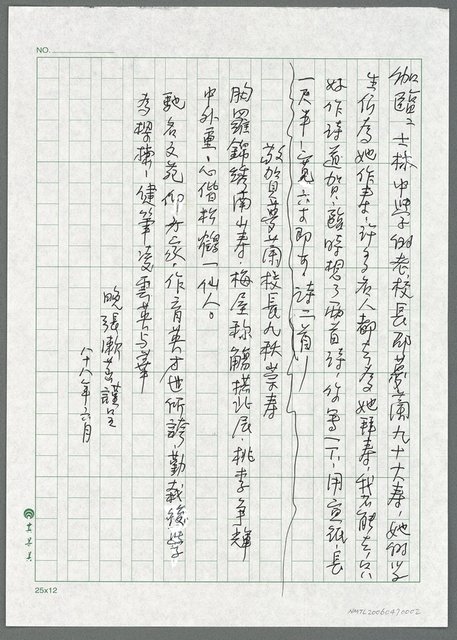 NO.
士林中學的老校長邵夢蘭九十大壽,她的學
生們為她作壽,許多名人都去為她拜壽,我不能去,只
好作詩道賀,臨時想了兩首詩,你寫一下,用宣紙,長
一尺半,寬六寸即可 詩二首
敬賀邵夢蘭校長九秩榮壽
胸羅錦繡南山壽,梅屋稱觴搭北辰,桃李爭輝
中外重,心偕松鶴一仙人。
馳名文苑仰方家,作育英才世所誇,勤栽後學
為樑棟,健筆凌雲英與華
晚張漱菡謹呈
八十八年六月
25x12
NMTL20060470002